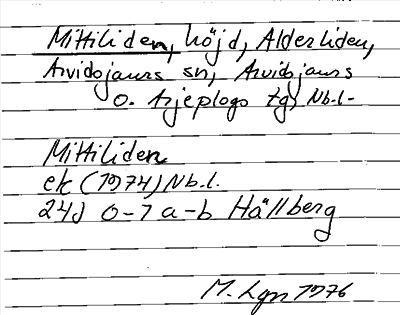 Mittiliden, höjd, Alderliden,
Arvidsjaurs sn, Arvidsjaurs
o. Arjeplogs tg, Nb.l.
Mittiliden
ek (1974) Nb.l.
24J 0-1 a-b Hällberg
M. Lgn 1976